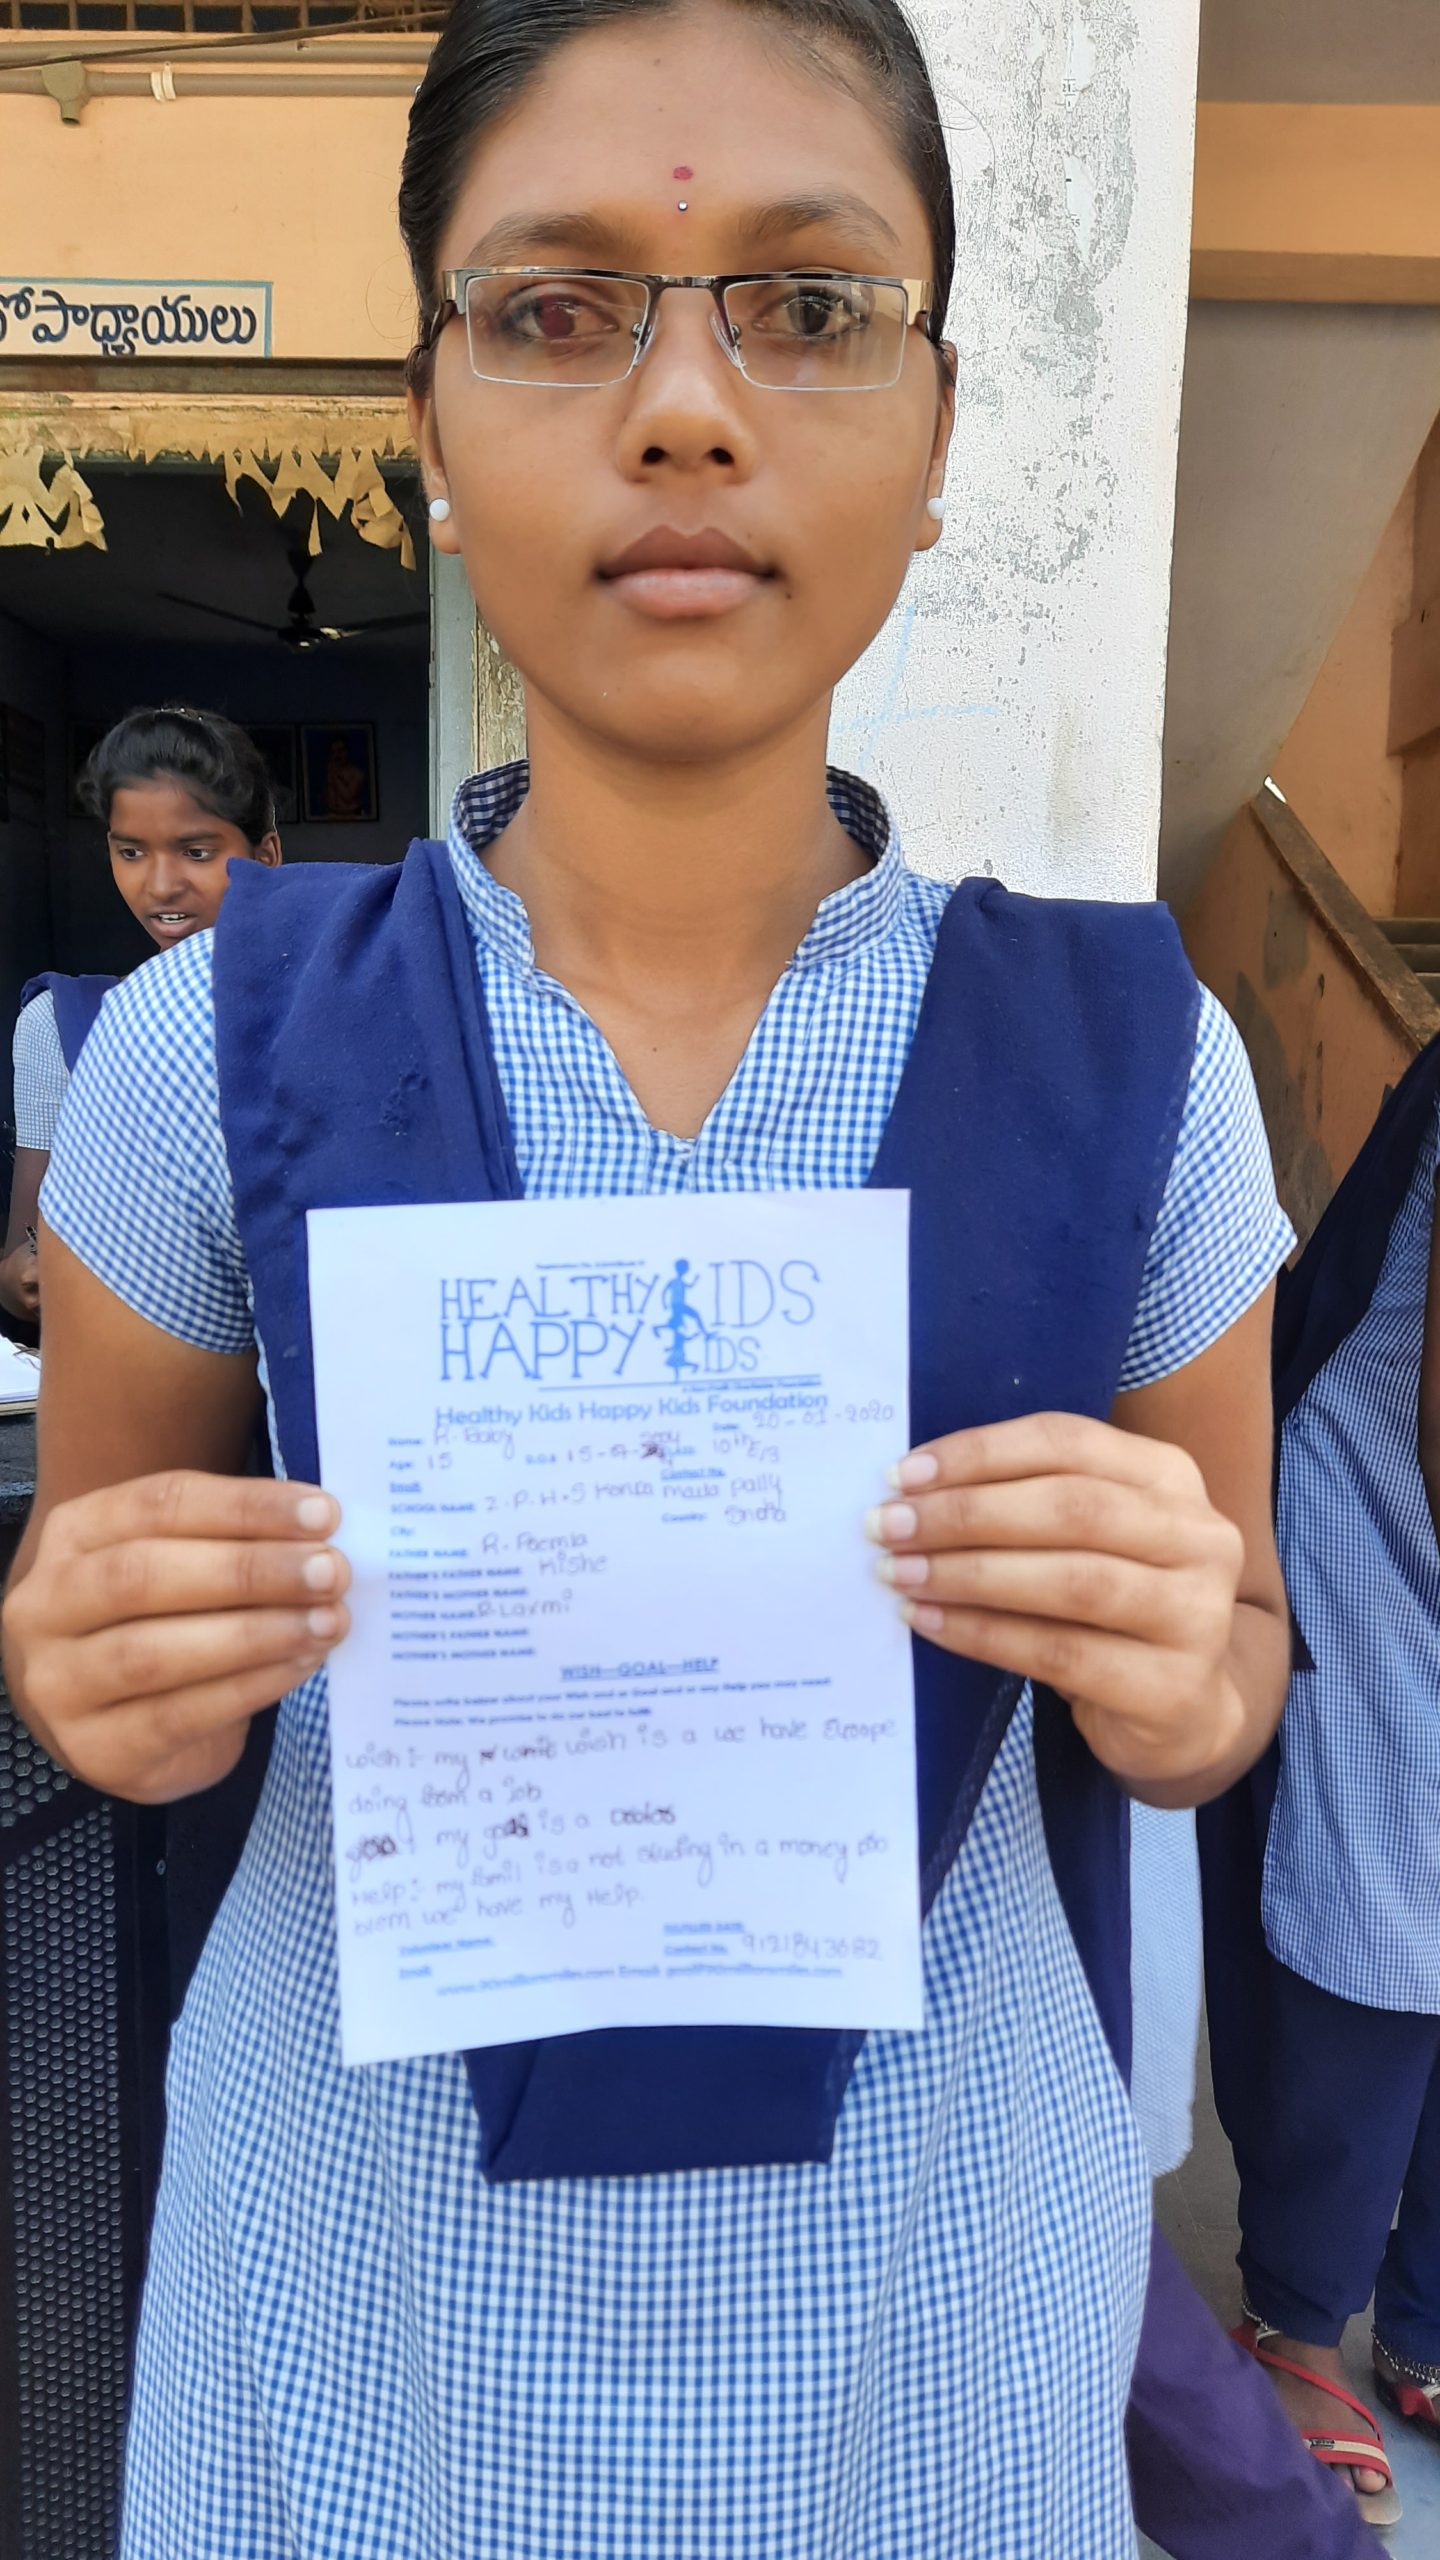 పాధ్యాయులు
HEALTHY KIDS
HAPPY KIDS
Healthy Kids Happy Kids Foundation
Name: R. Baby Date: 20-01-2020
Age: 15 D.O.B 15-07-2004 10th E/3
Email: Contact No.
SCHOOL NAME: Z.P.H.S Konda Malla pally
City: Country: India
FATHER NAME: R.
FATHER'S FATHER NAME: Kishe
FATHER'S MOTHER NAME:
MOTHER NAME: R. Laxmi
MOTHER'S FATHER NAME:
MOTHER'S MOTHER NAME:
WISH—GOAL—HELP
Please write below about your Wish and or Goal and or any Help you may need
Please Note: We promise to do our best to fulfill
wish :- my wish is a we have Euoope
doing from a job
my is a
Help :- my famil is a not studing in a money pro
blem we have my Help.
Volunteer Name: FULFILLED DATE:
Email: Contact No. 9121843682
www.90millionsmiles.com Email: